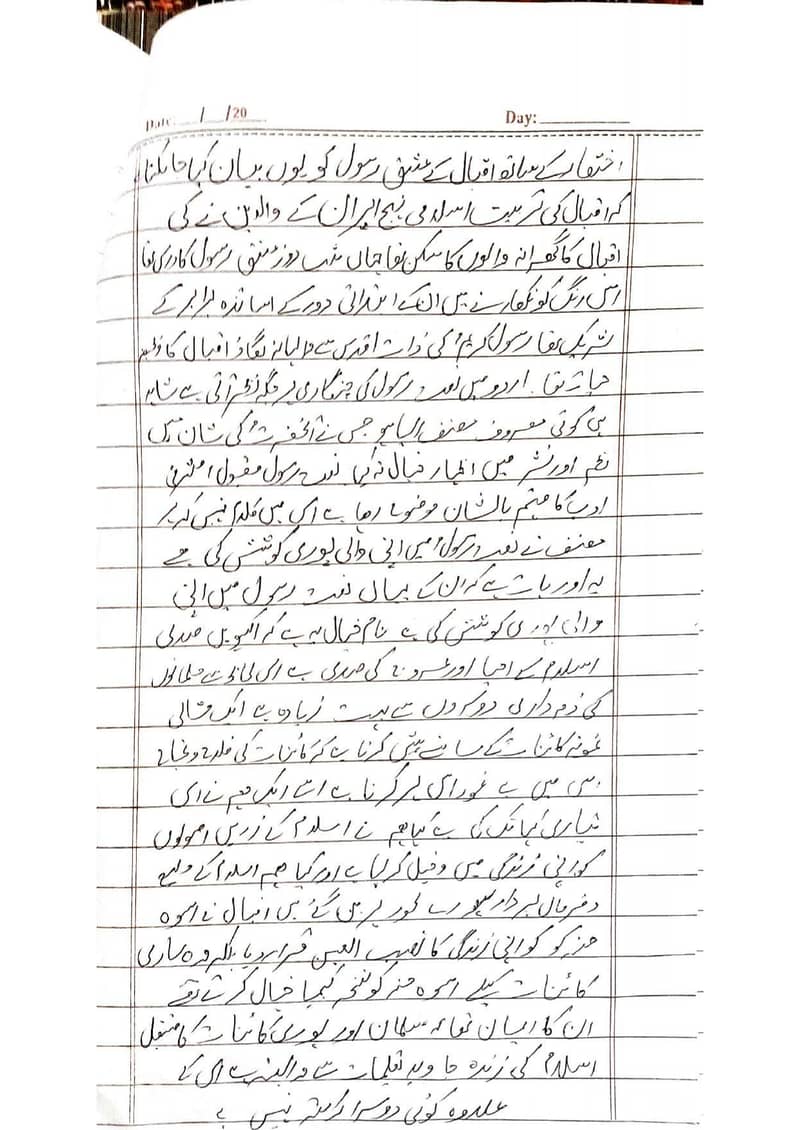 Date: __/__/20__ Day: ______
اختصار کے ساتھ اقبال کے عشق رسول کو یوں بیان کیا جا سکتا
کہ اقبال کی تربیت اسلامی نہج پر ان کے والدین نے کی
اقبال کا گھر انہ والوں کا مسکن تھا جہاں شب روز عشق رسول کا درس تھا
اس رنگ کو نکھارنے میں ان کے ابتدائی دور کے اساتذہ برابر کے
شریک تھا رسول کریمؐ کی ذات اقدس سے والہانہ لگاؤ اقبال کا
حیات تھا۔ اردو میں نعت رسول کی چنگاری ہر جگہ نظر آتی ہے شاید
ہی کوئی معروف مصنف ایسا ہو جس نے آنحضرتؐ کی شان میں
نظم اور نثر میں اظہار خیال نہ کیا نعت رسول مقبول مشرقی
ادب کا مہتم بالشان موضوع رہا ہے اس میں کلام نہیں کہ ہر
مصنف نے نعت رسولؐ میں اپنی والی پوری کوشش کی ہے
یہ اور بات ہے کہ ان کے یہاں نعت رسول میں اپنی
والی پوری کوشش کی ہے عام خیال یہ ہے کہ اکیسویں صدی
اسلام کے احیا اور عروج کی صدی ہے اس لحاظ سے مسلمانوں
کی ذمہ داری دوسروں سے بہت زیادہ ہے ایک مثالی
نمونہ کائنات کے سامنے پیش کرنا ہے کہ کائنات کی فلاح و نجات
اسی میں ہے غور اس پر کرنا ہے ابھی تک ہم نے اس
تیاری کہاں تک کی ہے کیا ہم نے اسلام کے زریں اصولوں
کو اپنی زندگی میں دخیل کر لیا ہے اور کیا ہم اسلام کے مطیع
و فرمان بردار پورے طور پر ہیں گے ہیں اقبال نے اسوہ
حسنہ کو اپنی زندگی کا نصب العین قرار دیا بلکہ وہ ساری
کائنات کیلے اسوہ حسنہ کو نسخہ کیمیا خیال کرتے تھے
ان کا ایمان تھا کہ مسلمان اور پوری کائنات کا مستقبل
اسلام کی زندہ جاوید تعلیمات سے وابستہ ہے اس کے
علاوہ کوئی دوسرا راستہ نہیں ہے